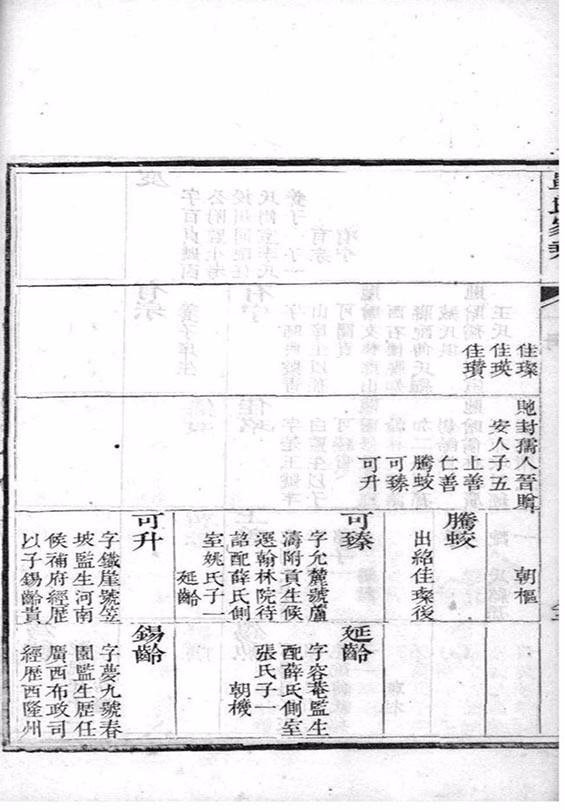 佳璨
佳瑛
佳瓚
貤封孺人晉贈
安人子五
上善
仁善
騰蛟
可臻
可升
朝樞
騰蛟
出紹佳璨後
可臻
字允麓號蘆
濤附貢生候
選翰林院待
詔配薛氏側
室姚氏子一
延齡
可升
字鐵崖號笠
坡監生河南
候補府經歷
以子錫齡貴
延齡
字容菴監生
配薛氏側室
張氏子一
朝機
錫齡
字夢九號春
圃監生歷任
廣西布政司
經歷西隆州